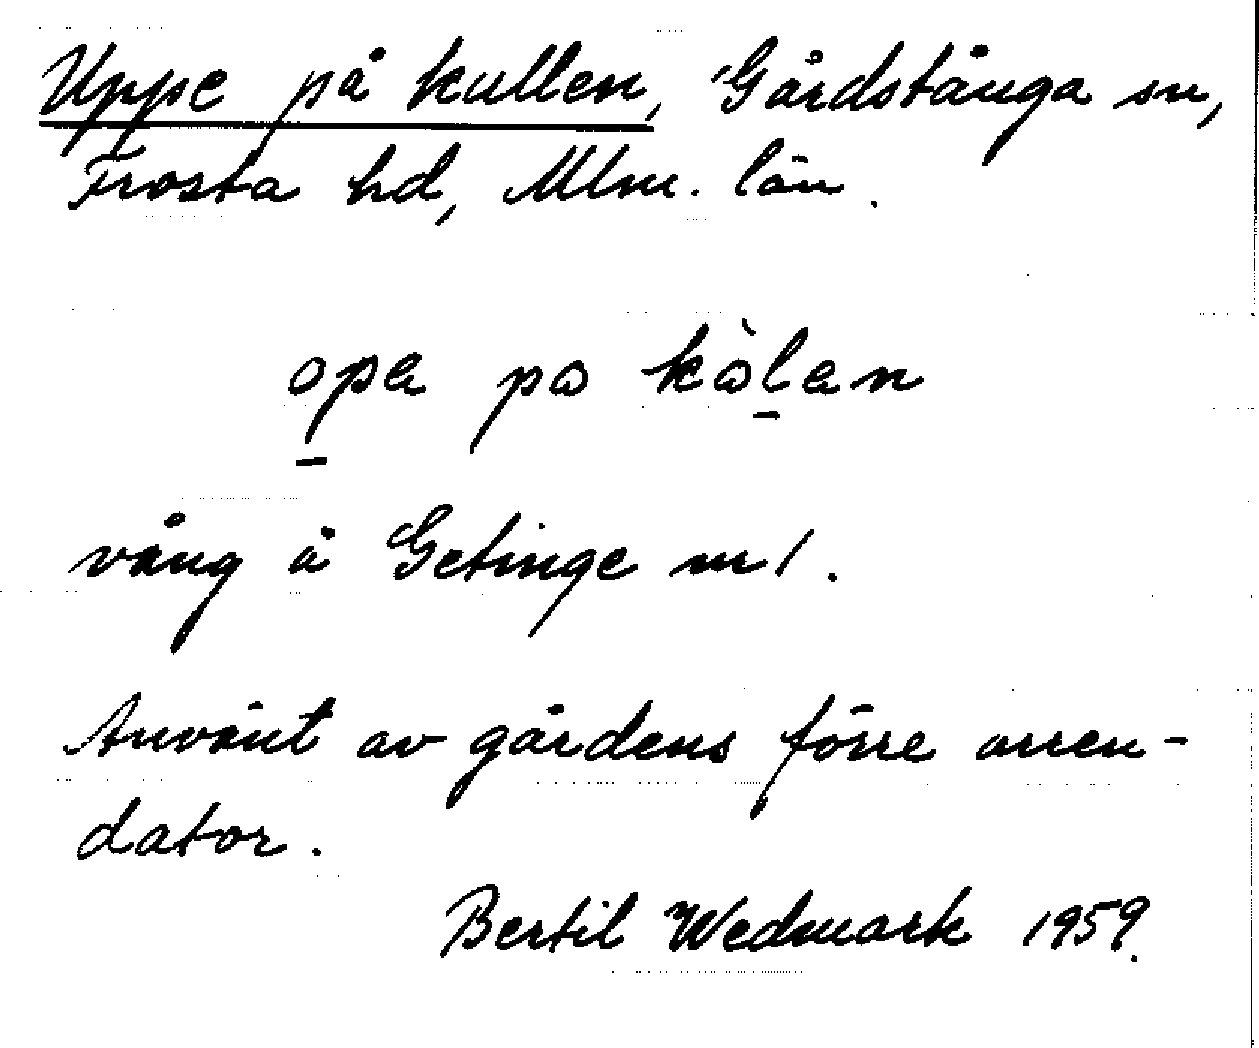 Uppe på kullen, Gårdstånga sn,
Frosta hd, Mlm. län.
opa po kòlan
vång å Getinge nr 1.
Använt av gårdens förre arren-
dator.
Bertil Wedmark 1959.